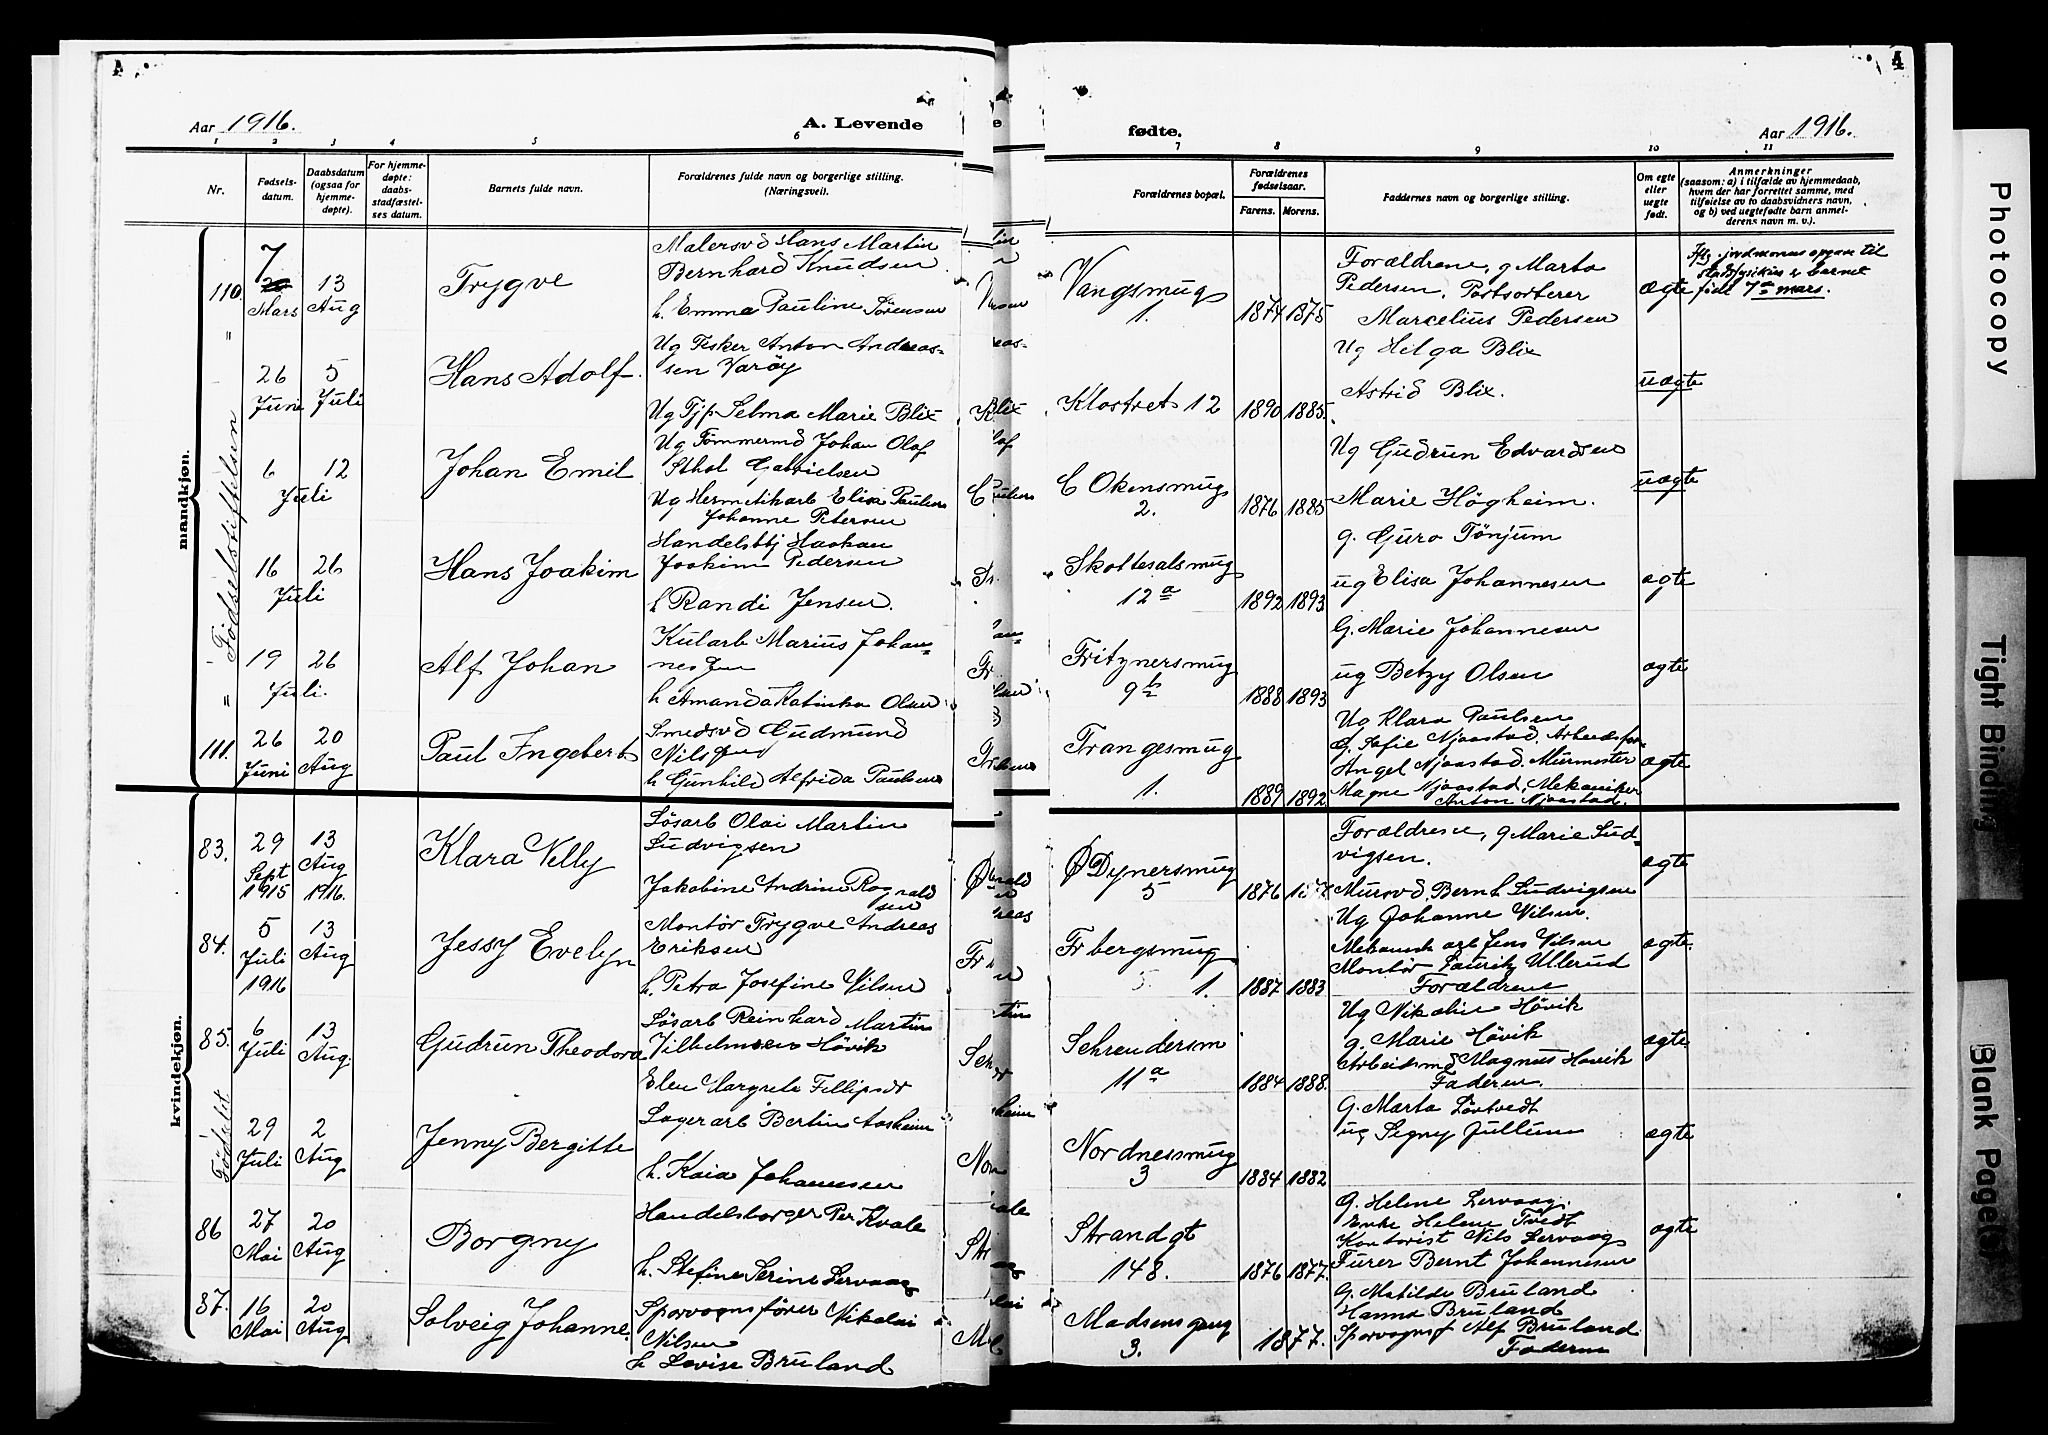 Aar 1916.
A. Levende
fødte.
Aar 1916.
1 2 3 4 5 6 7 8 9 10 11
Nr.
Fødsels-
datum.
Daabsdatum
(ogsaa for
hjemme-
døpte).
For hjemme-
døpte:
daabs-
stadfæstel-
ses datum.
Barnets fulde navn.
Forældrenes fulde navn og borgerlige stilling.
(Næringsvei).
Forældrenes bopæl.
Forældrenes
fødselsaar.
Farens. Morens.
Faddernes navn og borgerlige stilling.
Om egte
eller
uegte
født.
Anmerkninger
(saasom: a) i tilfælde av hjemmedaab,
hvem der har forrettet samme, med
tilføielse av to daabsvidners navn,
og b) ved uegtefødte barn anmel-
derens navn m. v.).
mandkjøn.
Fødselsstiftelsen
110.
7
Mars
13
Aug
Trygve
Malersvd Hans Martin
Bernhard Knudsen
h. Emma Pauline Sørensen
Vangsmug
1.
1874 1875
Forældrene, g Marta
Pedersen, Postsorterer
Marcelius Pedersen
ægte
jordmorens opgave til
stadfysikus er barnet
født 7de mars.
26
Juni
5
Juli
Hans Adolf
Ug Fisker Anton Andreas-
sen Varøy
Ug Tjp Selma Marie Blix
Klostret 12
1890 1885.
Ug Helga Blix
Astrid Blix.
uægte
6
12
Juli
Johan Emil
Ug Tømmermd Johan Olaf
Gabrielsen
Johanne Petersen
C Okensmug
2.
1876 1885
Ug Gudrun Edvardsen
Marie Høgheim.
uægte
16
26
Juli
Hans Joakim
Handelsbtj Haakan
Joakim Pedersen
h Randi Jensen.
Skottesalsmug
12 a
1892 1893
g. Guro Tønjum
ug Elisa Johannesen
ægte
19
26
Juli.
Alf Johan
Kularb Marius Johan-
nessen
h Amanda Katinka Olsen
Fritznersmug
9 b
1888 1893
G. Marie Johannesen
ug Betzy Olsen
ægte
111.
26
Juni
20
Aug
Paul Ingebert
Smedsvd Gudmund
Nilssen
h Gunhild Alfrida Paulsen
Trangesmug
1.
1889 1892
Ug Klara Paulsen
G. Sofie Njaastad, Arbeidsfor-
Angel Njaastad, Murmester
Magne Njaastad, Mekaniker
Anton Njaastad.
ægte
kvindekjøn.
83.
29
Sept
1915
13
Aug
1916.
Klara Nelly
Løsarb Olai Martin
Ludvigsen
Jakobine Andrine Rognald
sen
Ø Dynersmug
5
1876
Forældrene, g Marie Lud-
vigsen.
Mursvd. Bernh Ludvigsen
ægte
84.
5
Juli
1916
13
Aug
Jessy Evelyn
Montør Trygve Andreas
Eriksen
h. Petra Josefine Nilsen
Fr bergsmug
1.
1887 1883
Ug Johanne Nilsen.
Mekanisk arb Jens Nilsen
Montør Lauritz Ullerud
Forældrene
ægte.
85.
6
Juli
13
Aug.
Gudrun Theodora
Løsarb Reinhard Martin
Vilhelmsen Høvik
Elen Margrete Fillipser
Schrøndersm
11 a
1884 1888.
Ug Nikoline Høvik
g. Marie Høvik
Arbeidsmd Magnus Høvik
Faderen.
ægte.
Fødhjet
29
Juli
2
Aug
Jenny Bergitte
Lagerarb Bertin Aasheim
h. Kaia Johannesen
Nordnessmug
3
1884 1882
G. Marta Løvtvedt
ug Signy Jullum
ægte
86
27
Mai
20
Aug
Borgny
Handelsborger Per Kvale
h. Stefine Serine Lervaag
Strandgt
148.
1876 1877.
G. Helene Lervaag.
Enke Helene Tvedt
Kontorist Nils Lervaag
Fürer Bernt Johannesen
ægte
87.
16
Mai
20
Aug
Solveig Johanne.
Sporvognsfører Nikolai
Nilsen
h Lovise Bruland
Madsensgang
3.
1877.
G. Matilde Bruland
Hanna Bruland
Sporvognsf Alf Bruland
Faderen
Photocopy
Tight Binding
Blank Pages